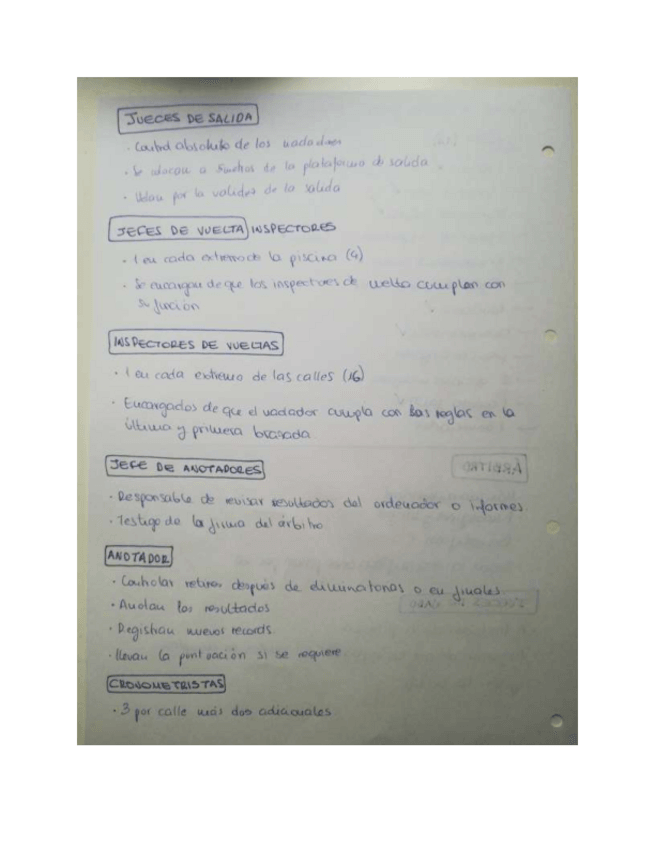 JUECES DE SALIDA
· Control absoluto de los nadadores
· Se colocan a 5 metros de la plataforma de salida
· Velan por la validez de la salida
JEFES DE VUELTA INSPECTORES
· 1 en cada extremo de la piscina (4)
· Se encargan de que los inspectores de vuelta cumplan con
su función
INSPECTORES DE VUELTAS
· 1 en cada extremo de las calles (16)
· Encargados de que el nadador cumpla con las reglas en la
última y primera brazada
JEFE DE ANOTADORES
· Responsable de revisar resultados del ordenador o informes.
· Testigo de la firma del árbitro
ANOTADOR
· Controlar retiros después de eliminatorias o en finales.
· Anotan los resultados
· Registran nuevos records.
· llevan la puntuación si se requiere.
CRONOMETRISTAS
· 3 por calle más dos adicionales.